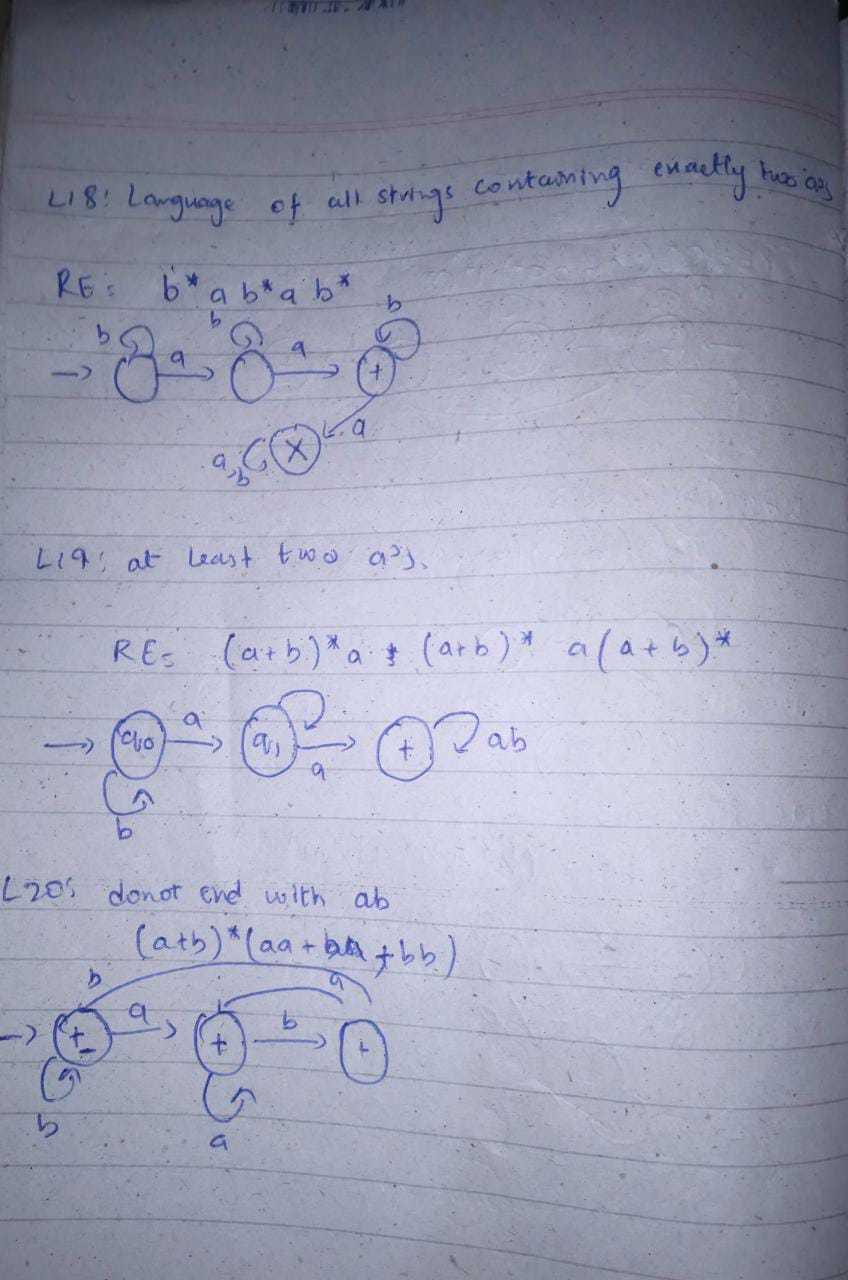 L18: Language of all strings containing exactly two a's
RE: b* a b* a b*
b b b
a a
+
a
a,b X
L19: at least two a's.
RE= (a+b)* a (a+b)* a(a+b)*
q0 a q1 a + ab
b
L20: donot end with ab
(a+b)*(aa+ba+bb)
b a
± a + b +
b a